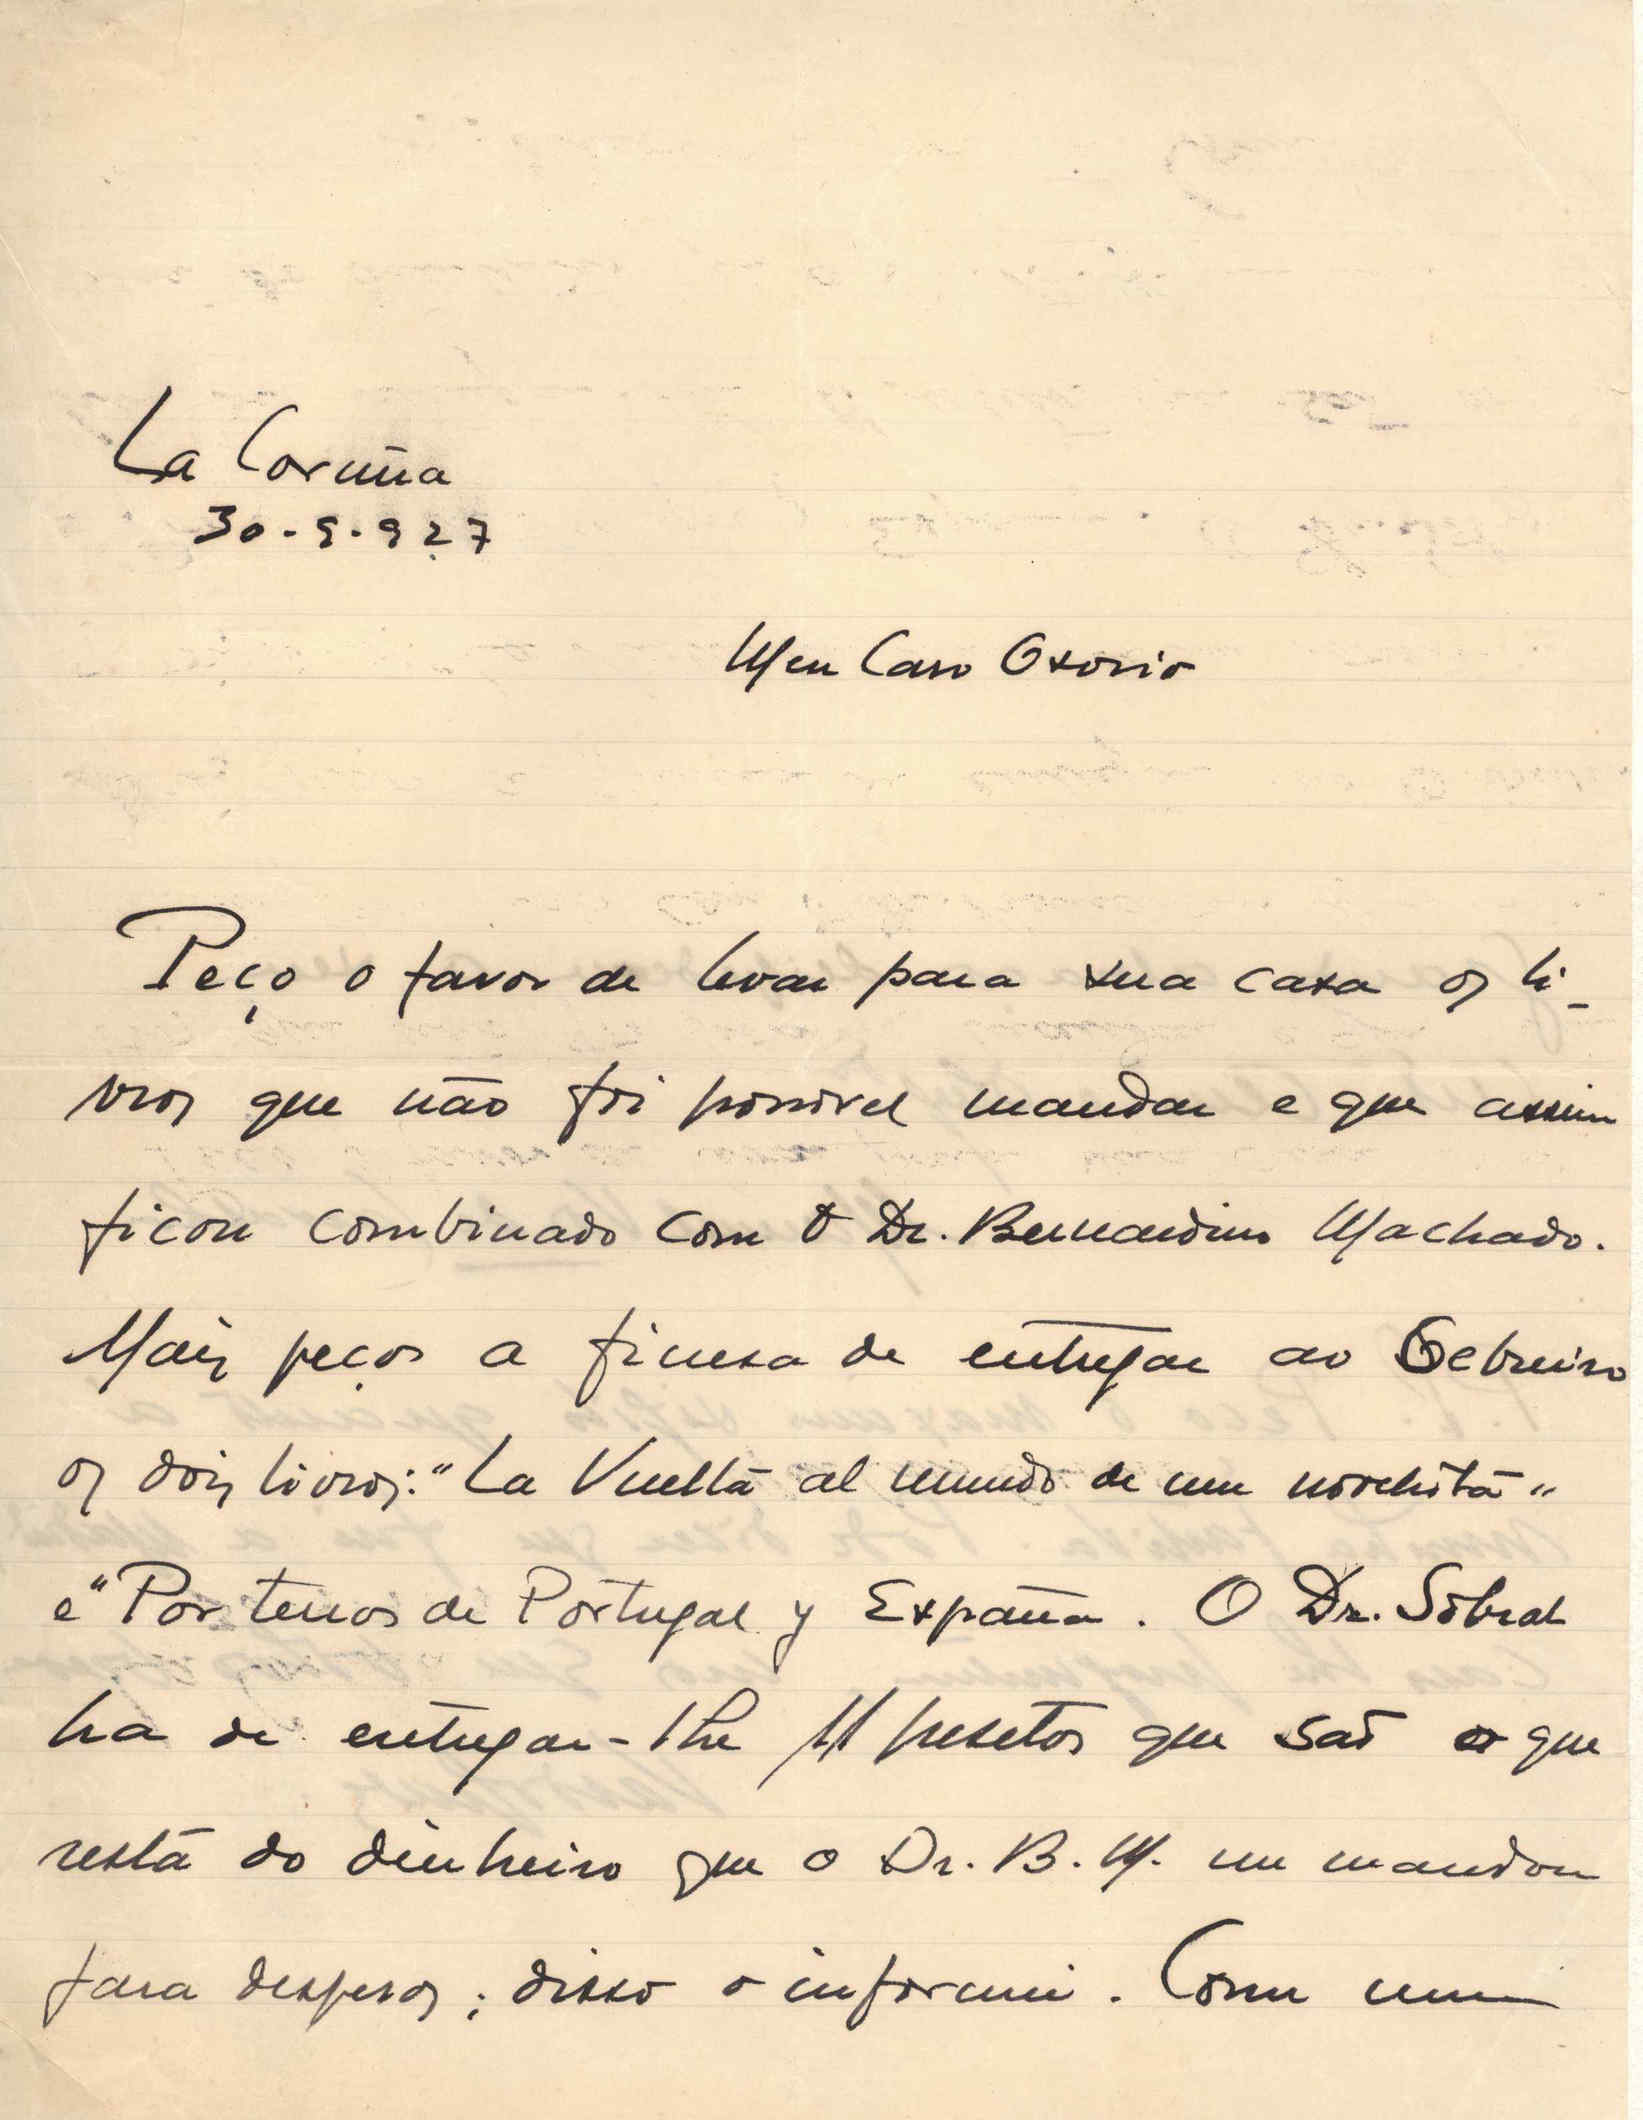 La Coruña
30-9-927
Meu Caro Osorio
Peço o favor de levar para sua casa os li-
vros que não foi possivel mandar e que assim
ficou combinado com o Dr. Bernardino Machado.
Mais peço a finesa de entregar ao
os dois livros: "La Vuelta al mundo de um novelista"
e "Por terras de Portugal y España. O Dr. Sobral
ha de entregar-lhe 11 pesetas que são o que
resta do dinheiro que o Dr. B. M. me mandou
para despesas; disso o informei. Como